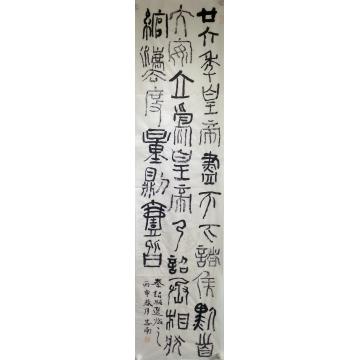 廿六年皇帝盡天下諸侯黔首
大安立為皇帝乃詔丞相狀
綰灋度量則
秦詔版選臨
丙申 月